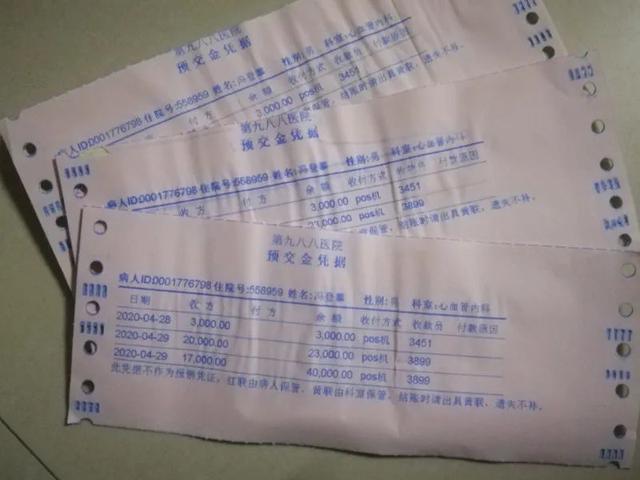 第九八八医院
预交金凭据
病人ID:0001776798 住院号:558959 姓名:冯登攀 性别:男 科室:心血管内科
余额 收付方式 收款员 付款原因
3,000.00 pos机 3451
保管、结账时请出具黄联、遗失不补.
第九八八医院
预交金凭据
病人ID:0001776798 住院号:558959 姓名:冯登攀 性别:男 科室:心血管内科
收方 付方 余额 收付方式 收款员 付款原因
3,000.00 pos机 3451
23,000.00 pos机 3899
保管、结账时请出具黄联、遗失不补.
第九八八医院
预交金凭据
病人ID:0001776798 住院号:558959 姓名:冯登攀 性别:男 科室:心血管内科
日期 收方 付方 余额 收付方式 收款员 付款原因
2020-04-28 3,000.00 3,000.00 pos机 3451
2020-04-29 20,000.00 23,000.00 pos机 3899
2020-04-29 17,000.00 40,000.00 pos机 3899
此凭据不作为报销凭证, 红联由病人保管、黄联由科室保管、结账时请出具黄联、遗失不补.